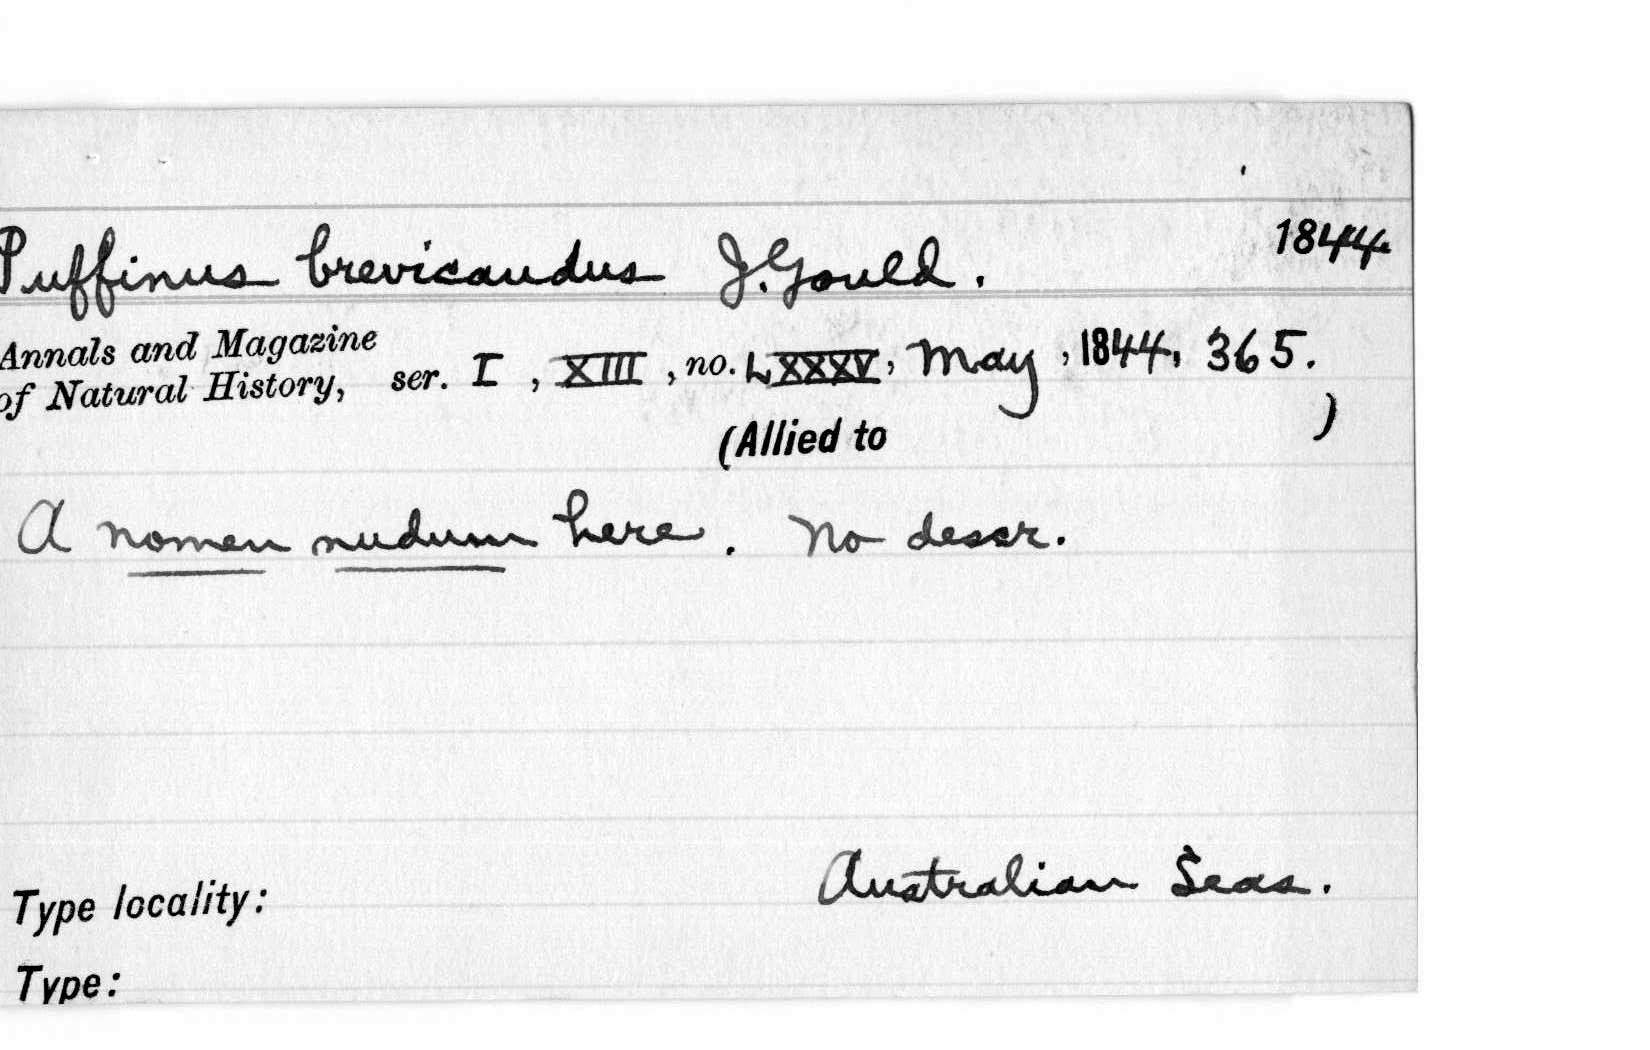 Puffinus brevicaudus J. Gould. 1844.
Annals and Magazine
of Natural History, ser. I, XIII, no. LXXXV, May, 1844, 365.
(Allied to )
A nomen nudum here. No descr.
Type locality: Australian Seas.
Type: